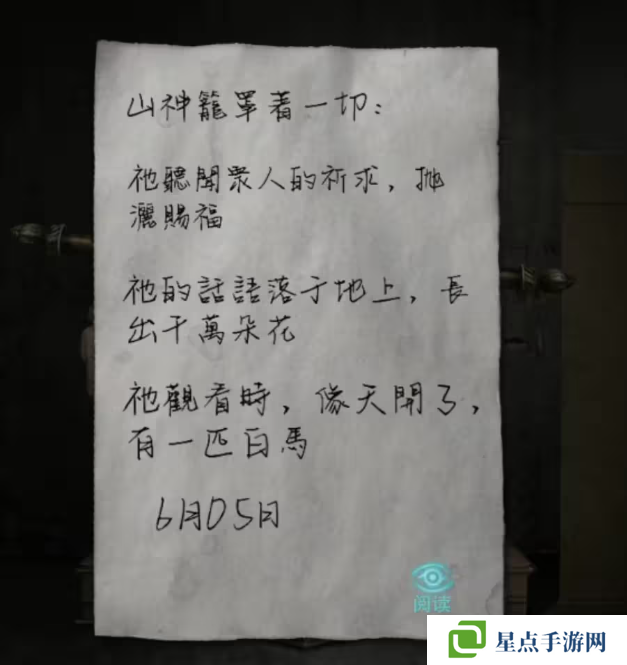 山神籠罩着一切：
祂聽聞眾人的祈求，抛
灑賜福
祂的話語落于地上，長
出千萬朵花
祂觀看時，像天開了，
有一匹白馬
6月05日
阅读
星点手游网